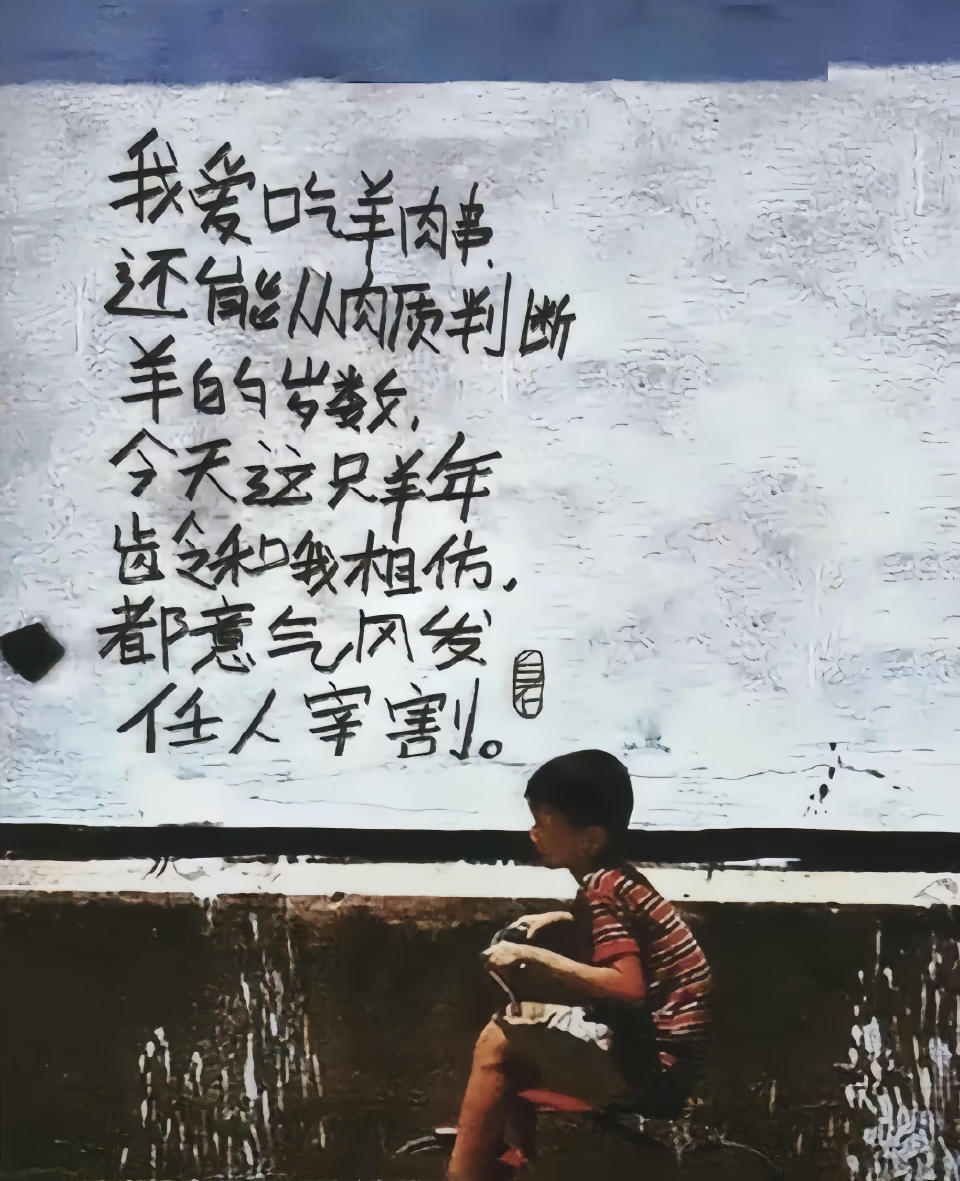 我爱吃羊肉串、
还能从肉质判断
羊的岁数,
今天这只羊年
龄和我相仿.
都意气风发
任人宰割。
白石